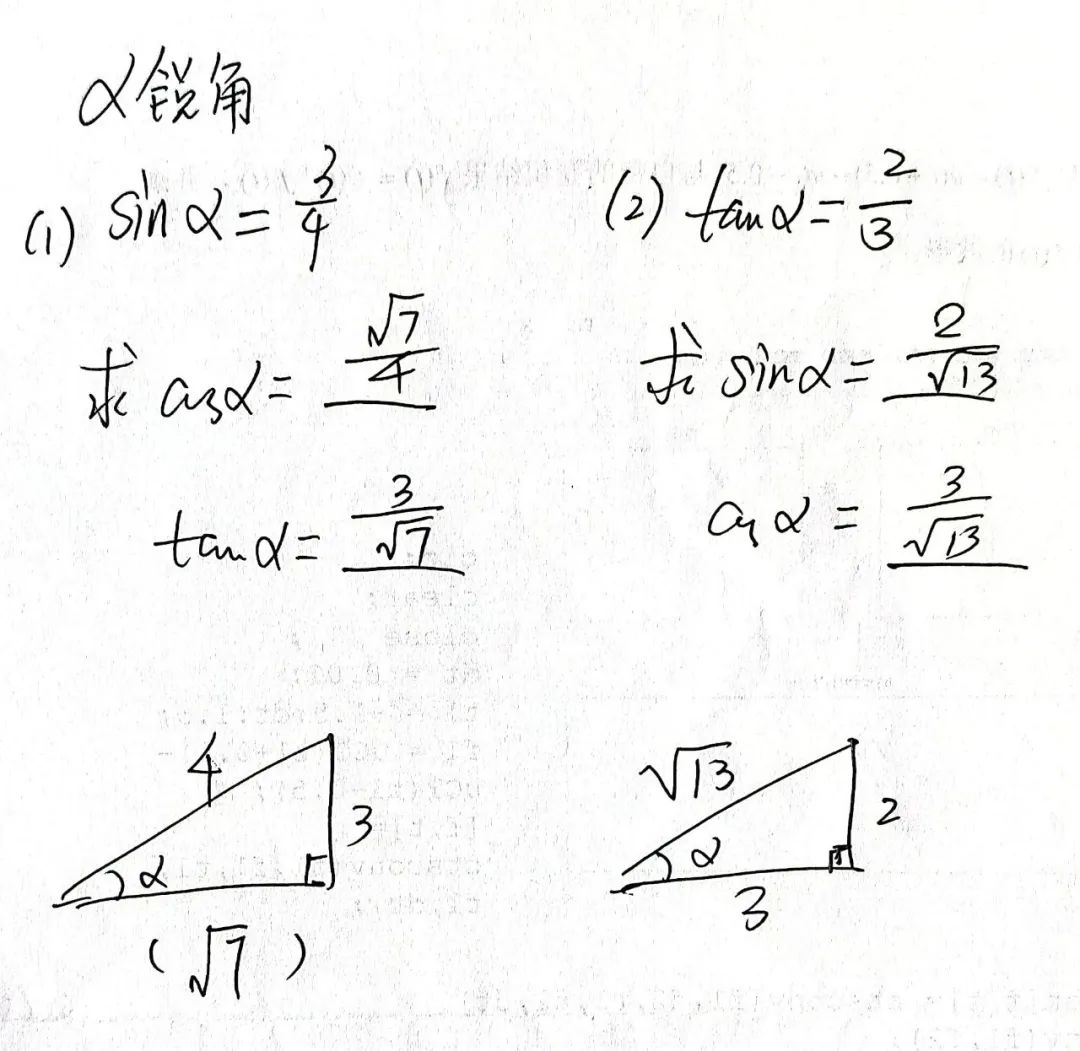 α锐角
(1) sinα = 3/4
求 cosα = √7/4
tanα = 3/√7
(2) tanα = 2/3
求 sinα = 2/√13
cosα = 3/√13
4
3
α
(√7)
√13
2
α
3